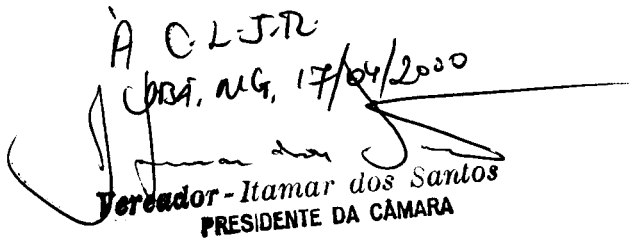 À C.L.J.R.
UBÁ, MG, 17/04/2000
Itamar dos S
Vereador - Itamar dos Santos
PRESIDENTE DA CÂMARA